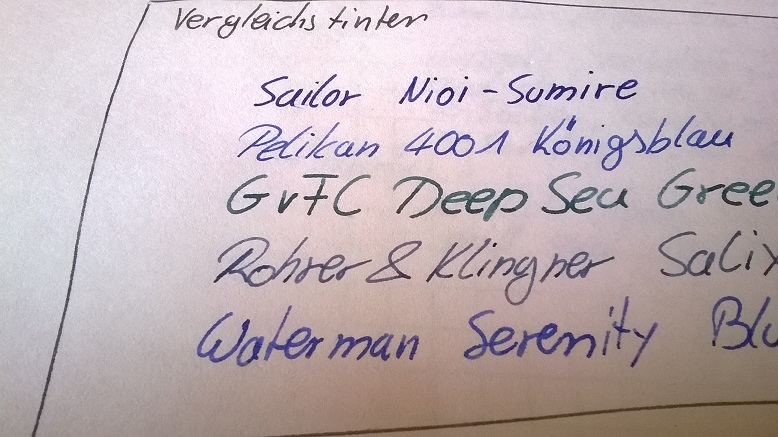 Vergleichstinten
Sailor Nioi-Sumire
Pelikan 4001 Königsblau
GvFC Deep Sea Gree
Rohrer & Klingner Salix
Waterman Serenity Blu